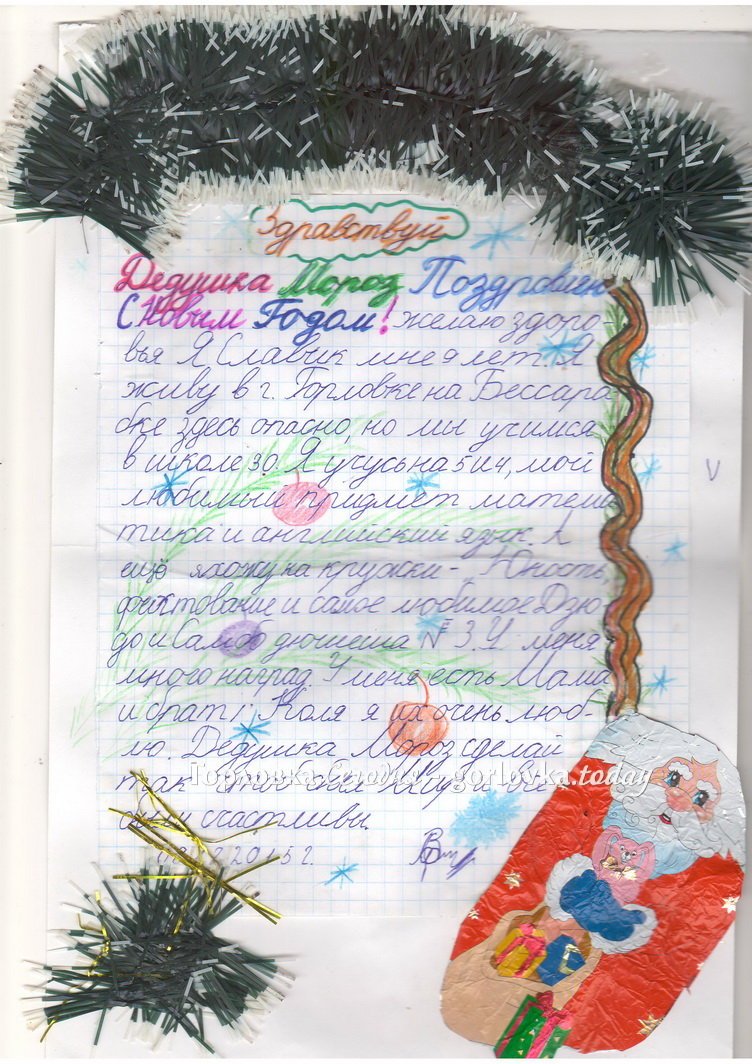 Здравствуй
Дедушка Мороз Поздравляем
С Новым Годом! желаю здоро-
вья Я Славик мне 9 лет. Я
живу в г. Горловке на Бессара
бке здесь опасно, но мы учимся
в школе 30. Я учусь на 5 и 4, мой
любимый придмет матема
тика и английский язык. А
ещё я хожу на кружки - Юность,
фихтование и самое любимое Дзю-
до и Самбо дюсшеша №3. У меня
много наград. У меня есть Мама
и брат Коля я их очень люб-
лю. Дедушка Мороз сделай
так чтоб был Мир и все
были счастливы.
2015 г.
Горловка Сегодня - gorlovka.today